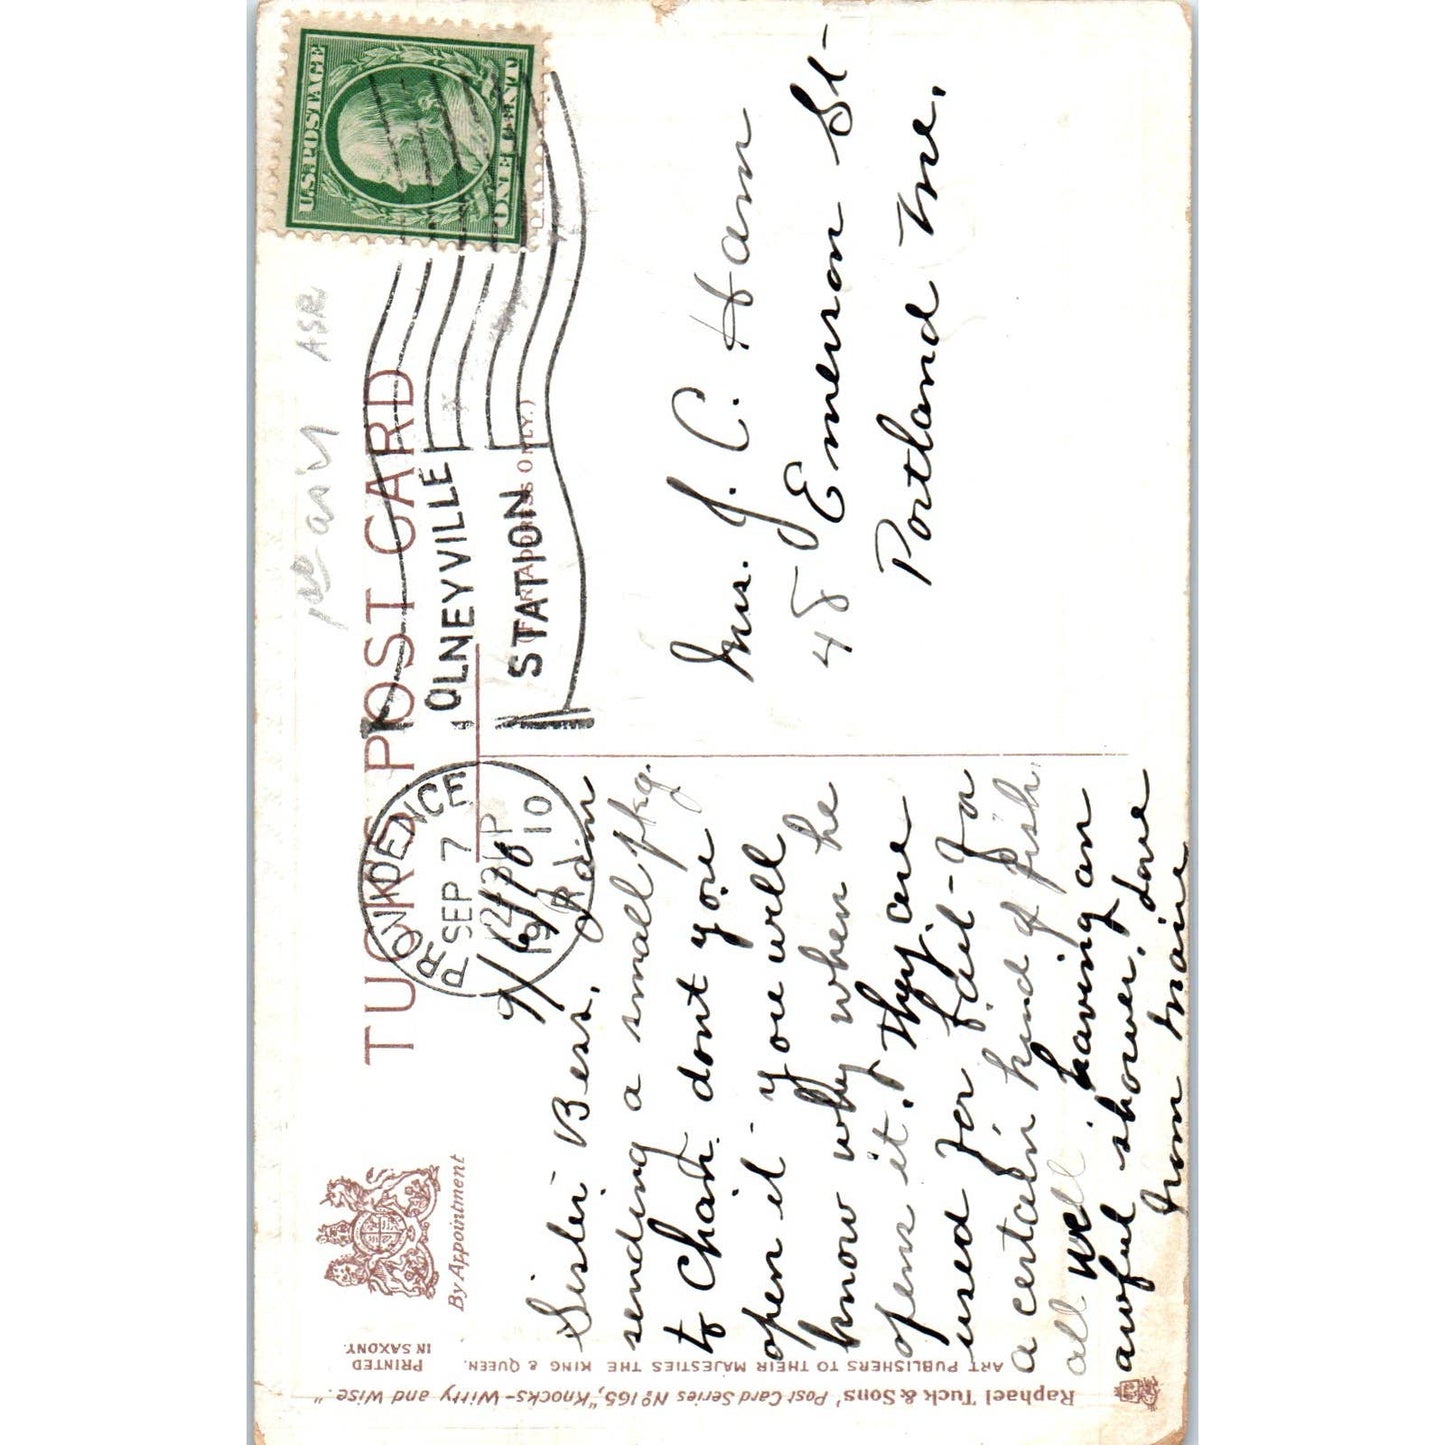 TUCK'S POST CARD
(FOR ADDRESS ONLY.)
By Appointment
PRINTED
IN SAXONY.
U.S. POSTAGE
ONE CENT
PROVIDENCE
SEP 7
10
R.I.
OLNEYVILLE
STATION
ASR
9/6/10
Sister Bess, Am
sending a small pkg.
to Chas. dont you
open it - you will
know why when he
opens it. They are
used for bait - for
a certain kind of fish,
all well having an
awful shower. Love
from Marie
Mrs. J. C. Ham
48 Emerson St-
Portland Me.
Raphael Tuck & Sons' Post Card Series No 165, "Knocks-Witty and Wise."
ART PUBLISHERS TO THEIR MAJESTIES THE KING & QUEEN.